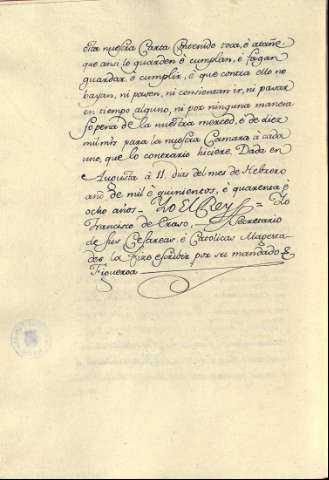 esta nuestra Carta Proveido toca, è atañe
que ansi lo guarden è cumplan, è fagan
guardar, è cumplir, è que contra ello no
bayan, ni pasen, ni consientan ir, ni pasar
en tiempo alguno, ni por ninguna manera
so pena de la nuestra merced, è de diez
mil mrs para la nuestra Camara à cada
uno, que lo contrario hiciere. Dada en
Augusta à 11 dias del mes de Hebrero
año de mil è quinientos, è quarenta è
ocho años = Yo El Rey = Yo
Francisco de Eraso, Secretario
de sus Cesareas è Catolicas Magesta
des la fize escribir por su mandado
Figueroa